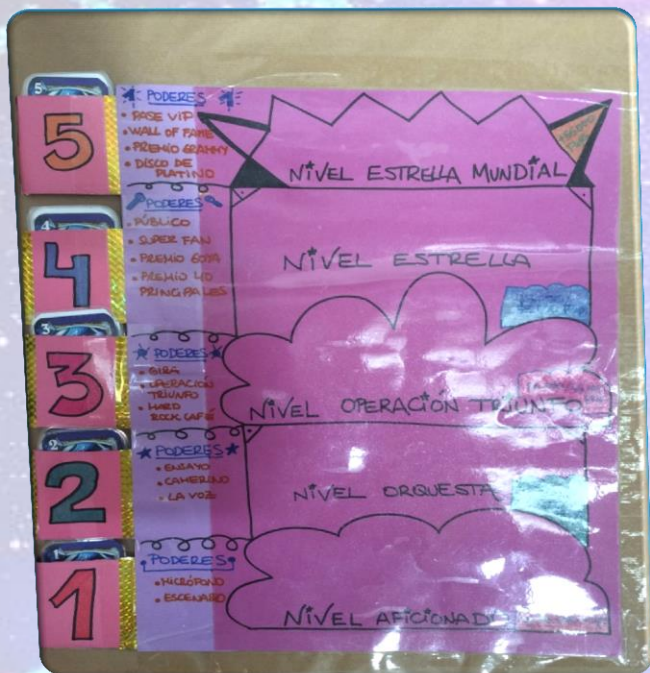 5
PODERES
• PASE VIP
• WALL OF FAME
• PREMIO GRAMMY
• DISCO DE
PLATINO
NIVEL ESTRELLA MUNDIAL
4
PODERES
• PÚBLICO
• SUPER FAN
• PREMIO GOYA
• PREMIO 40
PRINCIPALES
NIVEL ESTRELLA
3
PODERES
• GIRA
• OPERACIÓN
TRIUNFO
• HARD
ROCK CAFÉ
NIVEL OPERACIÓN TRIUNFO
2
PODERES
• ENSAYO
• CAMERINO
• LA VOZ
NIVEL ORQUESTA
1
PODERES
• MICRÓFONO
• ESCENARIO
NIVEL AFICIONADO